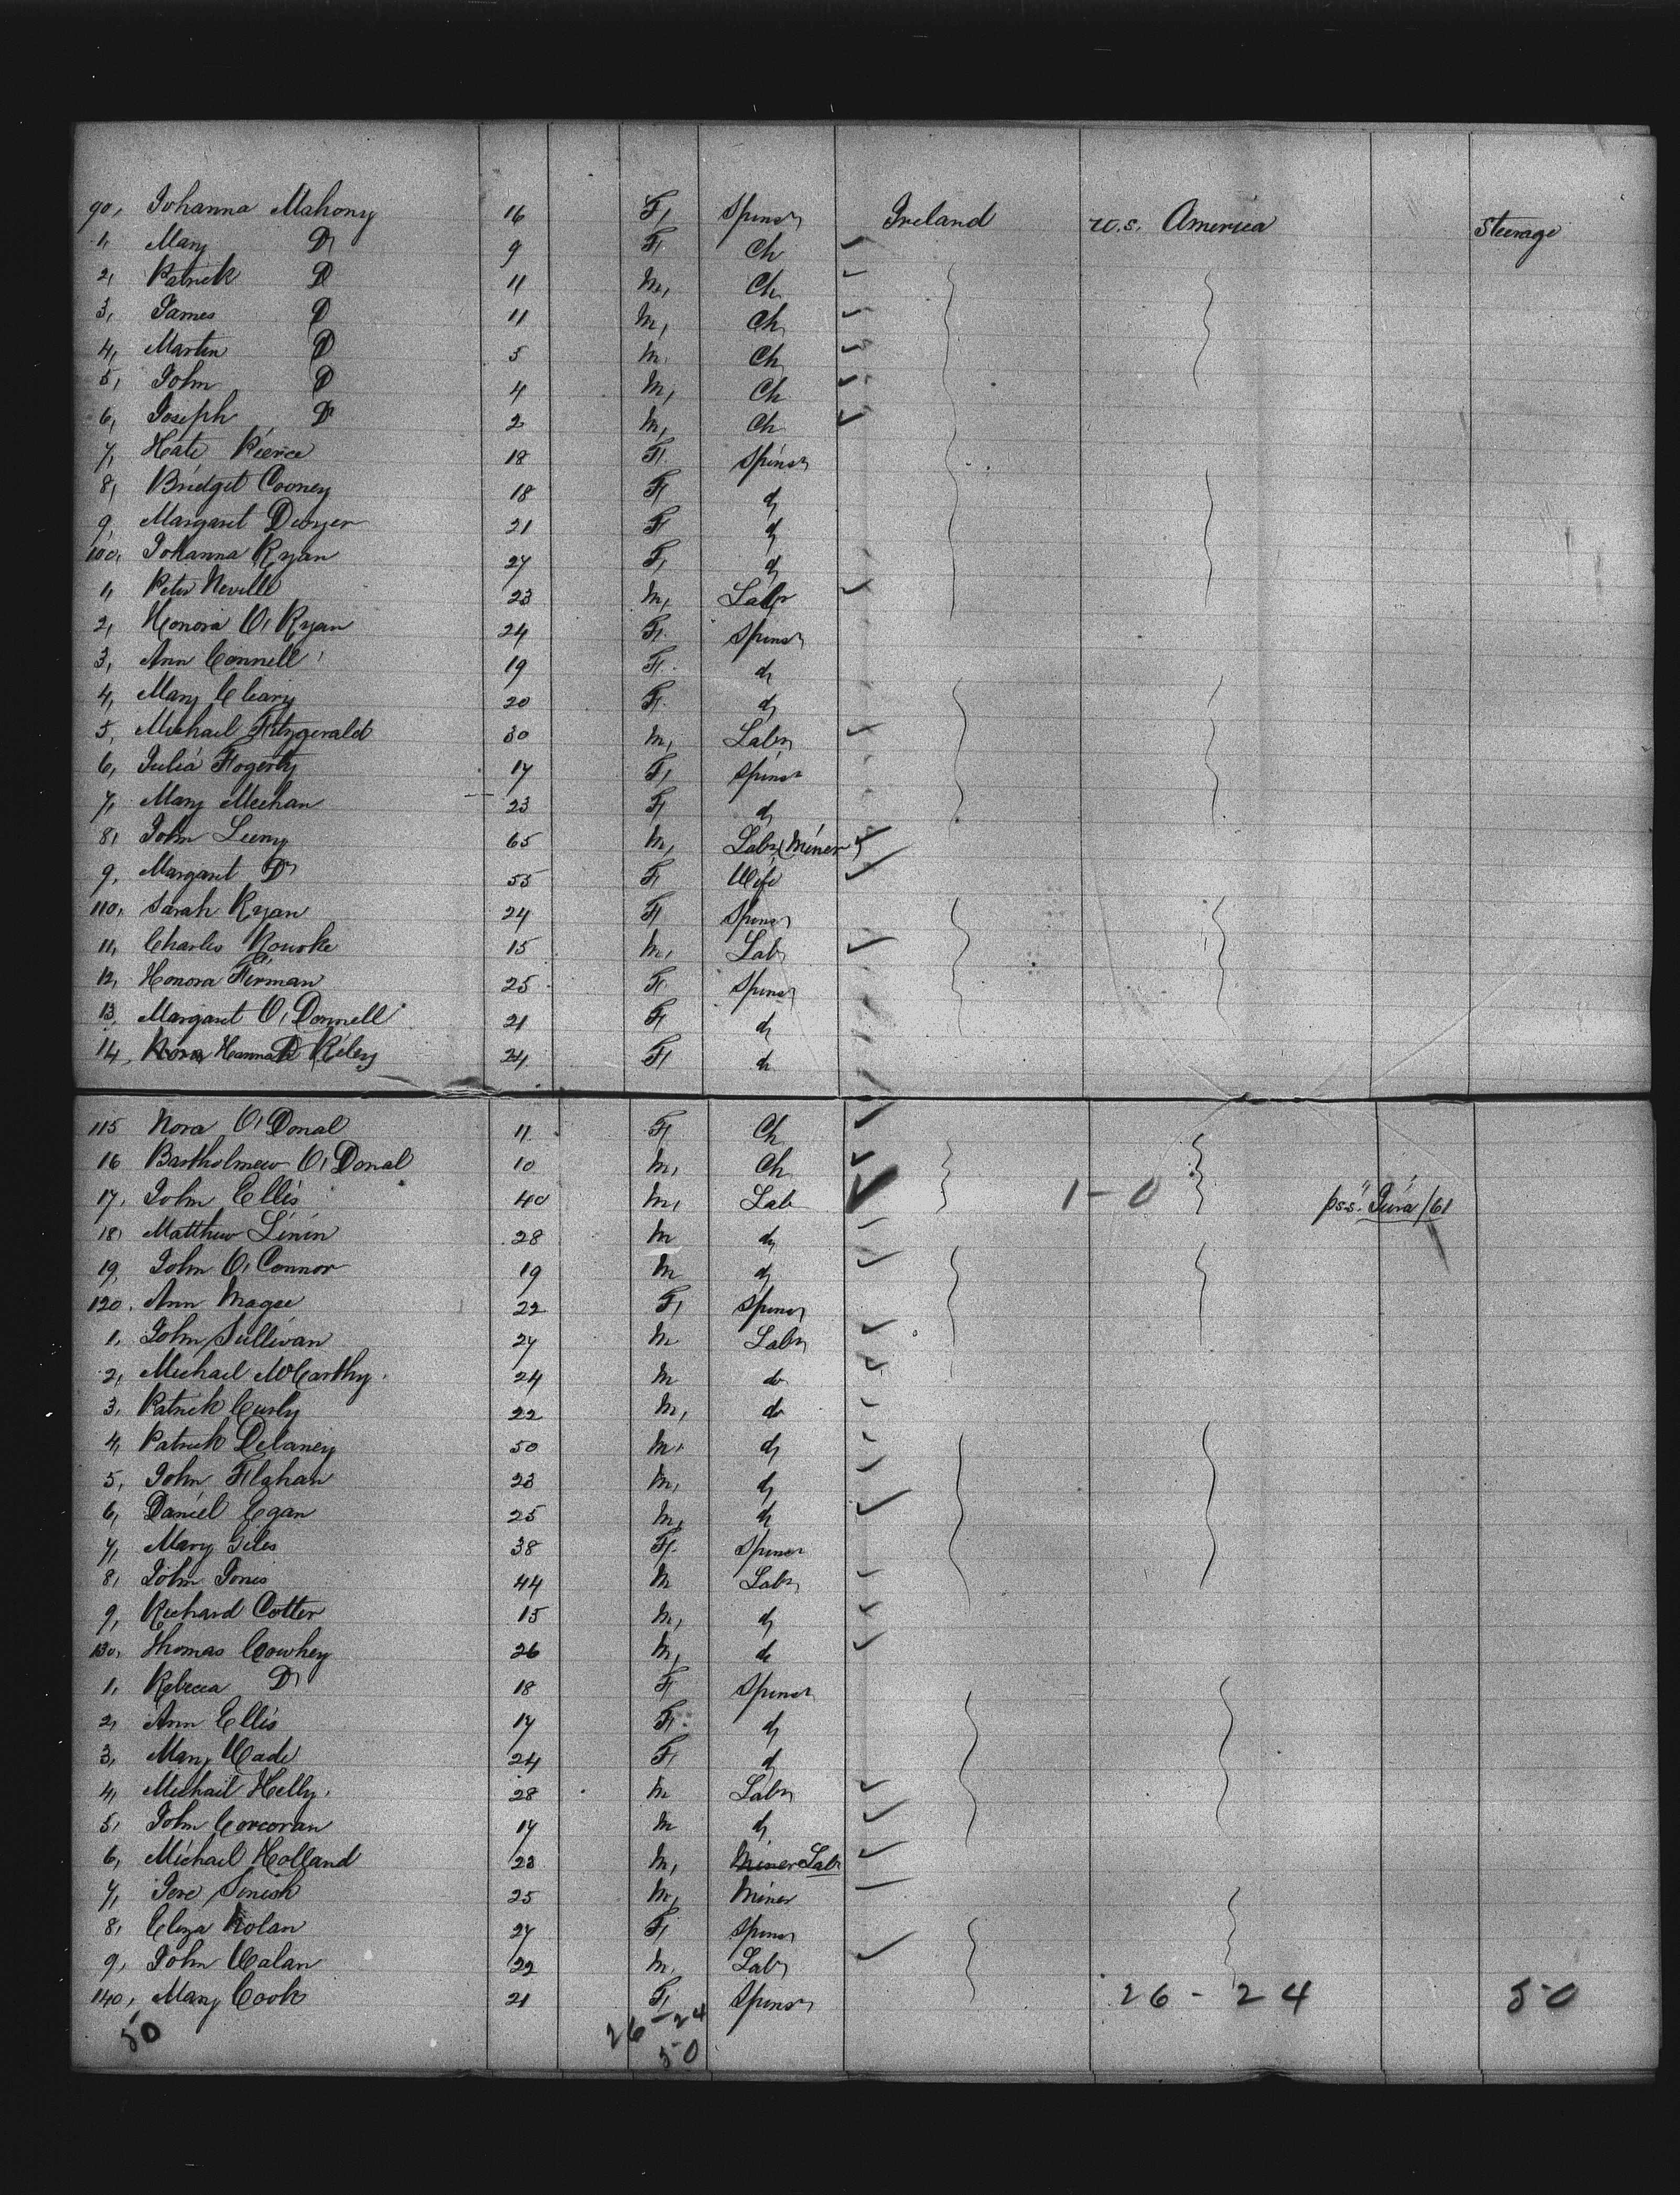 90, Johanna Mahony 16 F, Spinsr Ireland U.S. America Steerage
1, Mary Do 9 F. Ch
2, Patrick Do 11 M, Ch
3, James Do 11 M, Ch
4, Martin Do 5 M. Ch
5, John Do 4 M, Ch
6, Joseph Do 2 M, Ch
7, Kate Pierce 18 F. Spinsr
8, Bridget Cooney 18 F do
9, Margaret Dwyer 21 F do
100, Johanna Ryan 27 F, do
1, Peter Neville 23 M, Labr
2, Honora O'Ryan 24 F. Spinsr
3, Ann Connell 19 F. do
4, Mary Cleary 20 F. do
5, Michael Fitzgerald 30 M, Labr
6, Julia Fogerty 17 F, Spinsr
7, Mary Meehan 23 F do
8, John Leeny 65 M, Labr (Miner)
9, Margaret Do 55 F Wife
110, Sarah Ryan 24 F Spinsr
11, Charles Rourke 15 M, Labr
12, Honora Firman 25 F Spinsr
13, Margaret O'Donnell 21 F do
14, Hannah Riley 24 F do
115 Nora O'Donal 11 F Ch
16 Bartholmew O'Donal 10 M, Ch
17, John Ellis 40 M, Lab 1-0 p s.s. "Jura"/61
18, Matthew Linin 28 M do
19, John O'Connor 19 M do
120, Ann Magee 22 F, Spinsr
1, John Sullivan 27 M Labr
2, Michael McCarthy 24 M do
3, Patrick Curly 22 M, do
4, Patrick Delaney 50 M, do
5, John Flahan 23 M, do
6, Daniel Egan 25 M, do
7, Mary Giles 38 F. Spinsr
8, John Jones 44 M Labr
9, Richard Cotter 15 M, do
130, Thomas Cowhey 26 M, do
1, Rebecca Do 18 F Spinsr
2, Ann Ellis 17 F. do
3, Mary Wade 24 F do
4, Michail Kelly 28 M Labr
5, John Corcoran 17 M do
6, Michail Holland 23 M, Miner Labr
7, Jere 25 M, Miner
8, Eliza Nolan 27 F, Spinsr
9, John Walan 22 M, Labr
140, Mary Cook 21 F, Spinsr 26 - 24 50
50 26-24
50